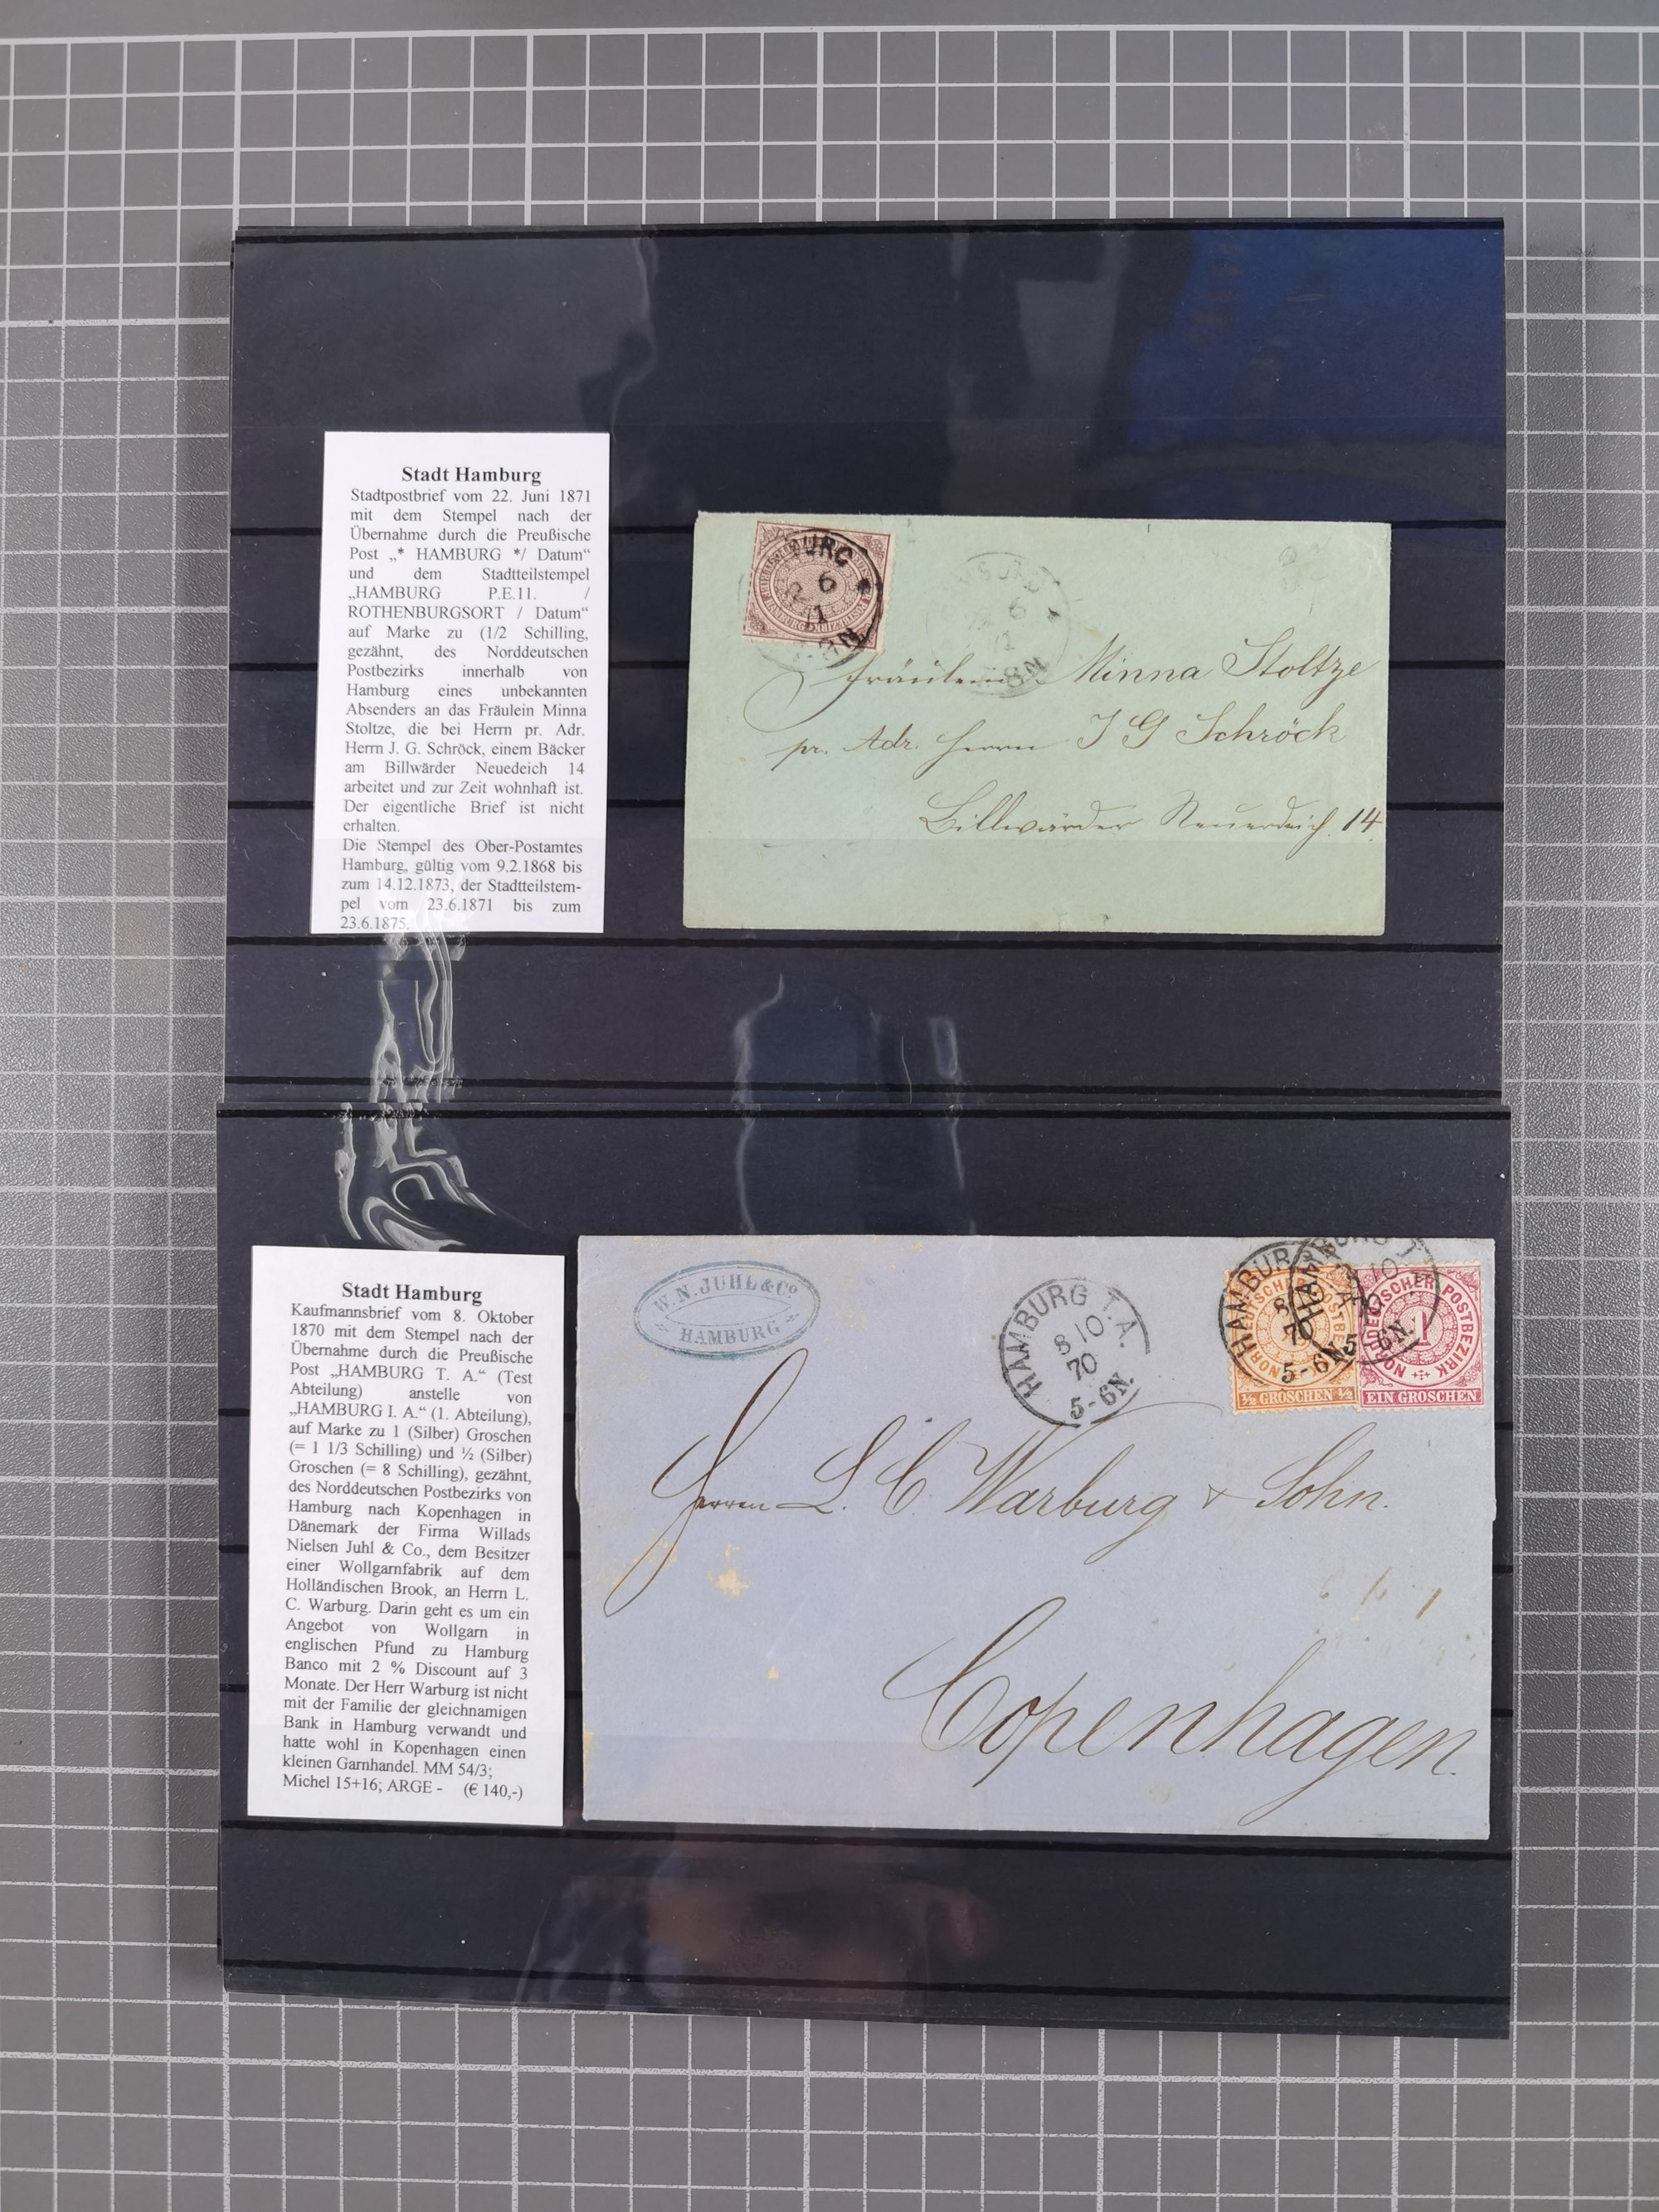 Stadt Hamburg
Stadtpostbrief vom 22. Juni 1871
mit dem Stempel nach der
Übernahme durch die Preußische
Post „* HAMBURG */ Datum“
und dem Stadtteilstempel
„HAMBURG P.E.11. /
ROTHENBURGSORT / Datum“
auf Marke zu (1/2 Schilling,
gezähnt, des Norddeutschen
Postbezirks innerhalb von
Hamburg eines unbekannten
Absenders an das Fräulein Minna
Stoltze, die bei Herrn pr. Adr.
Herrn J. G. Schröck, einem Bäcker
am Billwärder Neuedeich 14
arbeitet und zur Zeit wohnhaft ist.
Der eigentliche Brief ist nicht
erhalten.
Die Stempel des Ober-Postamtes
Hamburg, gültig vom 9.2.1868 bis
zum 14.12.1873, der Stadtteilstem-
pel vom 23.6.1871 bis zum
23.6.1875.
Fräulein Minna Stoltze
pr. Adr. Herrn J G Schröck
Billwärder Neuerdeich 14.
Stadt Hamburg
Kaufmannsbrief vom 8. Oktober
1870 mit dem Stempel nach der
Übernahme durch die Preußische
Post „HAMBURG T. A.“ (Test
Abteilung) anstelle von
„HAMBURG I. A.“ (1. Abteilung),
auf Marke zu 1 (Silber) Groschen
(= 1 1/3 Schilling) und ½ (Silber)
Groschen (= 8 Schilling), gezähnt,
des Norddeutschen Postbezirks von
Hamburg nach Kopenhagen in
Dänemark der Firma Willads
Nielsen Juhl & Co., dem Besitzer
einer Wollgarnfabrik auf dem
Holländischen Brook, an Herrn L.
C. Warburg. Darin geht es um ein
Angebot von Wollgarn in
englischen Pfund zu Hamburg
Banco mit 2 % Discount auf 3
Monate. Der Herr Warburg ist nicht
mit der Familie der gleichnamigen
Bank in Hamburg verwandt und
hatte wohl in Kopenhagen einen
kleinen Garnhandel. MM 54/3;
Michel 15+16; ARGE - (€ 140,-)
W. N. JUHL & Co.
HAMBURG
HAMBURG T.A.
8 10
70
5-6N.
½ GROSCHEN ½
EIN GROSCHEN
Herren L. C. Warburg & Sohn.
Copenhagen.